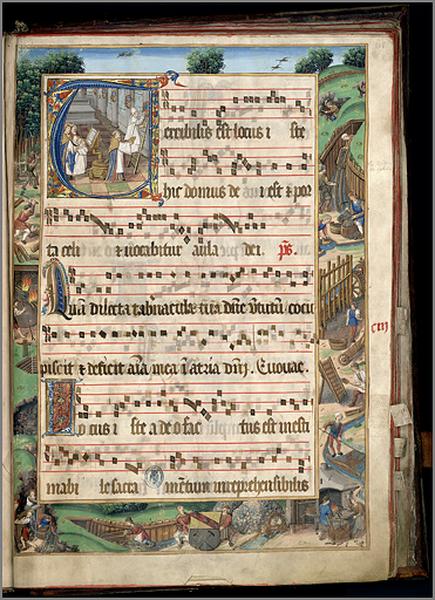 Terribilis est locus i ste
hic domus de i est & por
ta celi & uocabitur aula dei. ps.
Quā dilecta tab'nacula tua dn̄e v̓tutū cōcu
piscit & deficit aīa mea ī atria dn̄i. Euouae.
Locus i ste a deo fac tus est inesti
mabi le sacra mentum irreprehensibilis
ciii